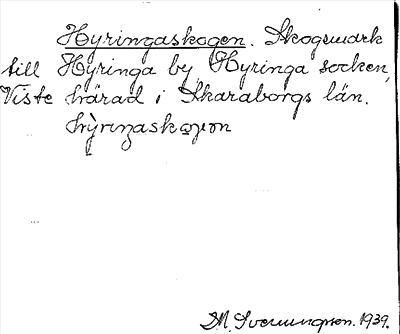 Hyringaskogen. Skogsmark
till Hyringa by, Hyringa socken,
Viste härad i Skaraborgs län.
hỳrıŋaskoɡən
M. Sverungsson. 1939.